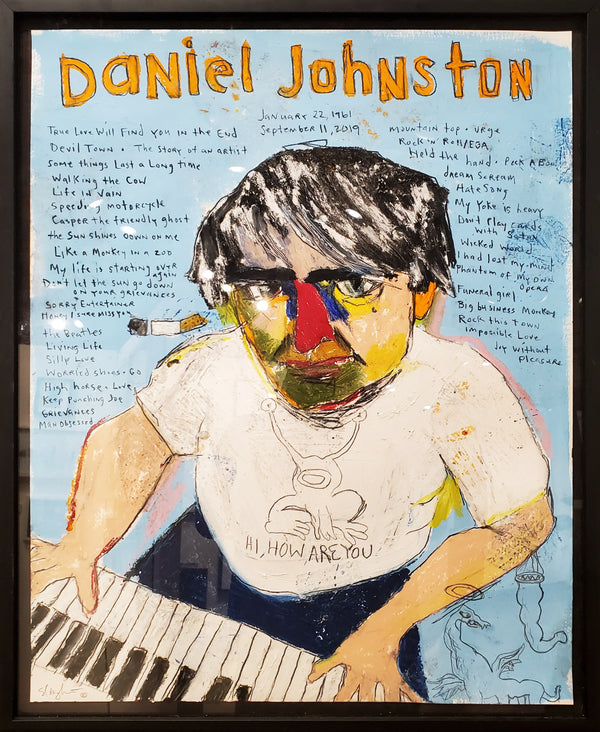 DANiEL JOHNSTON
January 22, 1961
September 11, 2019
True Love Will Find you in the End
Devil Town • The Story of an artist
Some things Last a Long time
Walking the Cow
Life in Vain
Speeding motorcycle
Casper the friendly ghost
the Sun Shines down on me
Like a Monkey in a Zoo
My life is starting over
again
Don't let the sun go down
on your grievances
Sorry Entertainer
Honey I sure miss you
the Beatles
Living Life
Silly Love
Worried shoes • Go
High horse • Love
Keep punching Joe
Grievances
Man Obsessed
mountain top • urge
Rock 'n Roll/EGA
Held the hand • Peek A Boo
dream scream
Hate Song
My Yoke is heavy
Don't Play cards
with Satan
Wicked world
I had lost my mind
Phantom of my own
opera
Funeral girl
Big business Monkey
Rock this town
Impossible Love
Joy without
pleasure
HI, HOW ARE YOU